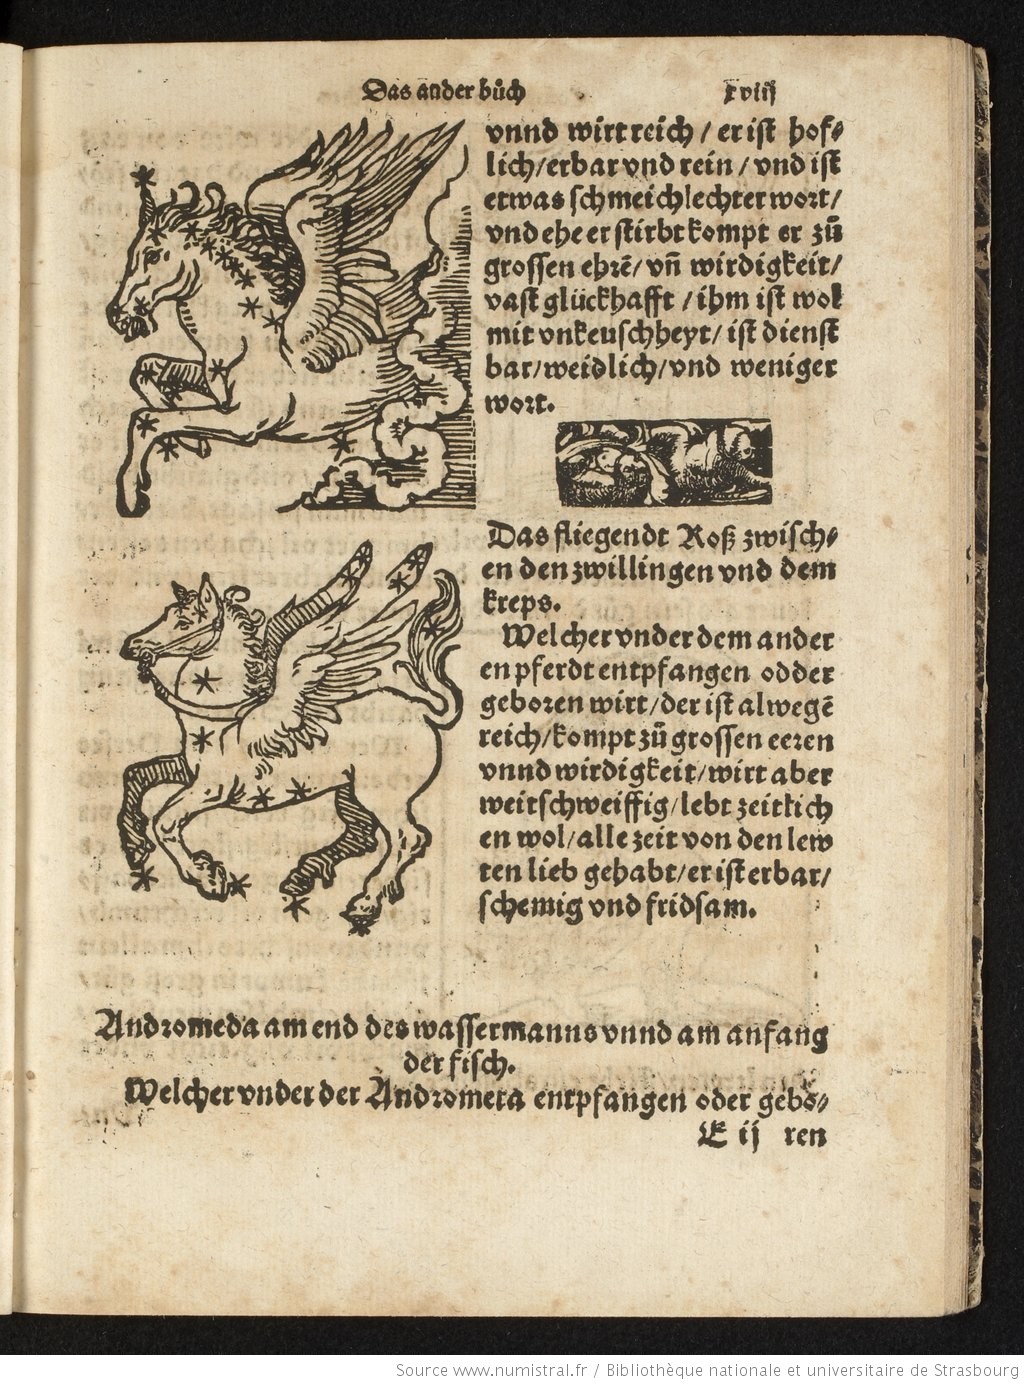 Das ander bůch xviij
vnnd wirt reich / er ist hof⸗
lich/erbar vnd rein / vnd ist
etwas schmeichlechter wort/
vnd ehe er stirbt kompt er zů
grossen ehrē/ vñ wirdigkeit/
vast glückhafft / ihm ist wol
mit vnkeuschheyt/ ist dienst
bar/weidlich/vnd weniger
wort.
Das fliegendt Roß zwisch⸗
en den zwillingen vnd dem
kreps.
Welcher vnder dem ander
en pferdt entpfangen odder
geboren wirt/der ist alwegē
reich/kompt zů grossen eeren
vnnd wirdigkeit/wirt aber
weitschweiffig/lebt zeitlich
en wol/alle zeit von den lew
ten lieb gehabt/er ist erbar/
schemig vnd fridsam.
Andromeda am end des wassermanns vnnd am anfang
der fisch.
Welcher vnder der Andrometa entpfangen oder gebo⸗
E ij ren
Source www.numistral.fr / Bibliothèque nationale et universitaire de Strasbourg